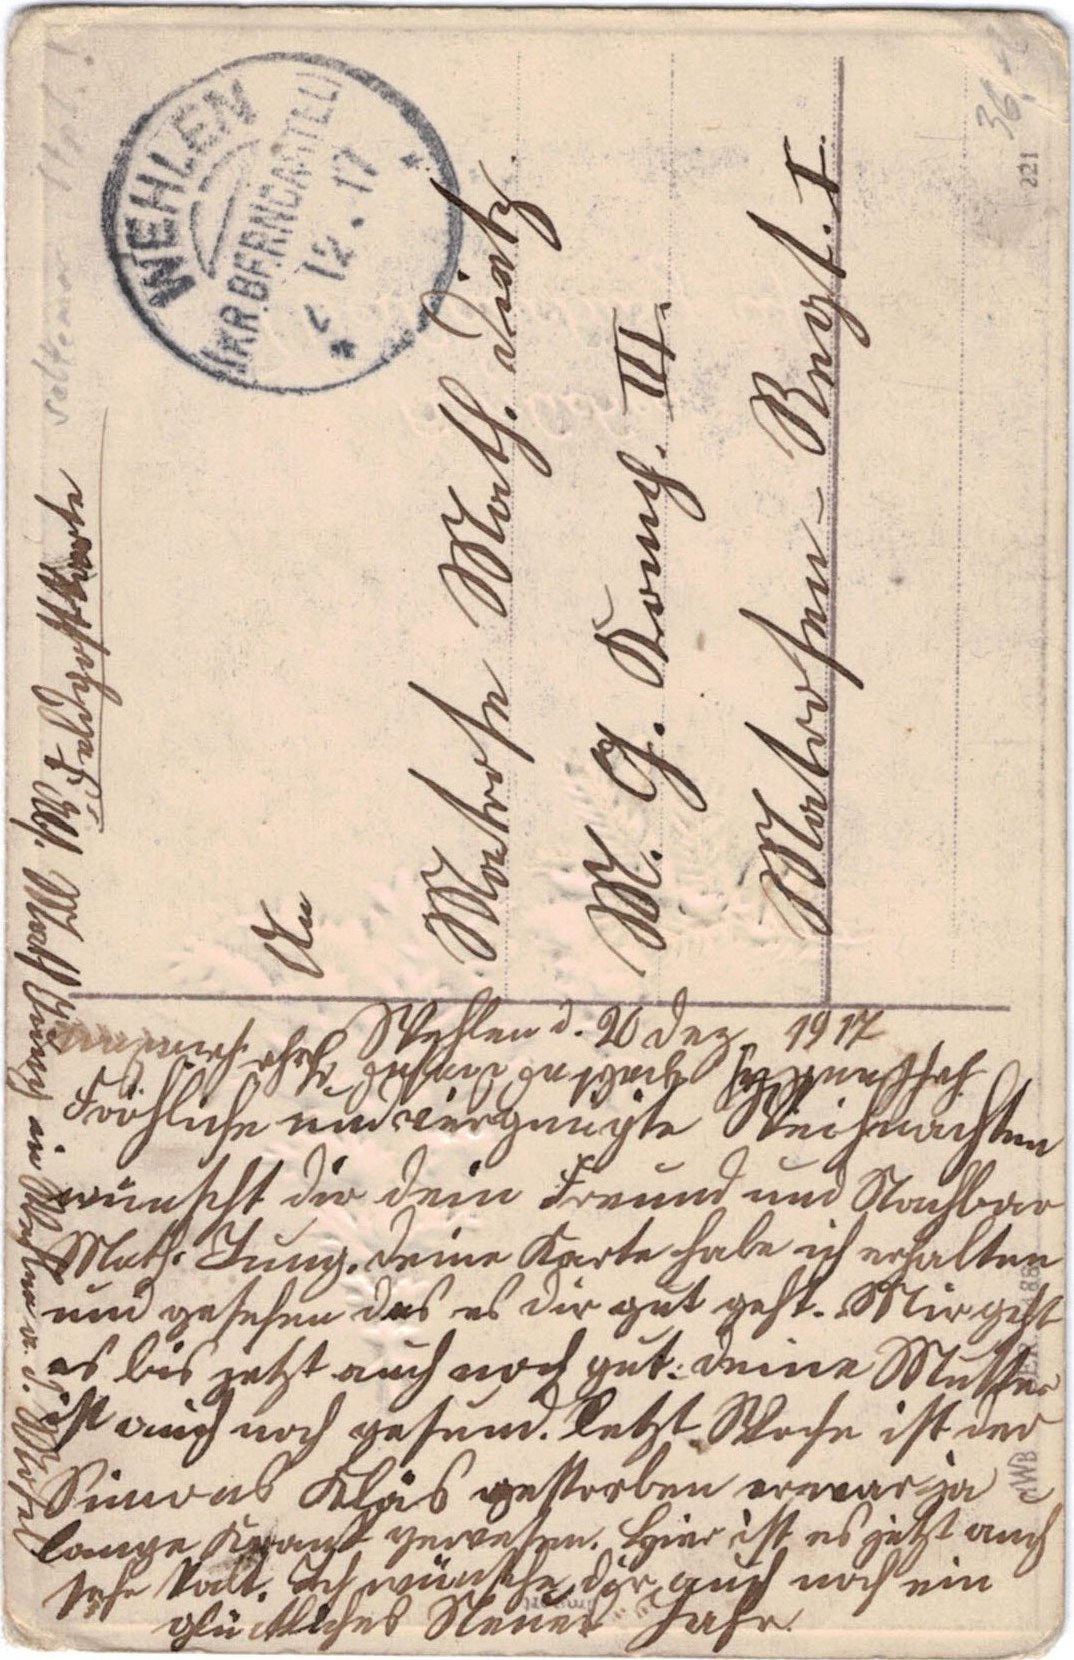 WEHLEN
(KR.BERNCASTEL)
12.17
An
Matrose Math. Dietz
M. G. Komp. III.
Matrosen-Regt. I
221
36
Wehlen d. 20 Dez. 1917
Fröhliche und vergnügte Weihnachten
wünscht dir dein Freund und Nachbar
Math. Jung. deine Karte habe ich erhalten
und gesehen das es dir gut geht. Mir geht
es bis jetzt auch noch gut. deine Mutter
ist auch noch gesund. letzt Woche ist der
Simons Kläs gestorben er war ja
lange Krank gewesen. Hier ist es jetzt auch
sehr Kalt. Ich wünsche dir auch noch ein
glückliches Neues Jahr.
Abs. Math Jung in Wehlen a. d. Mosel